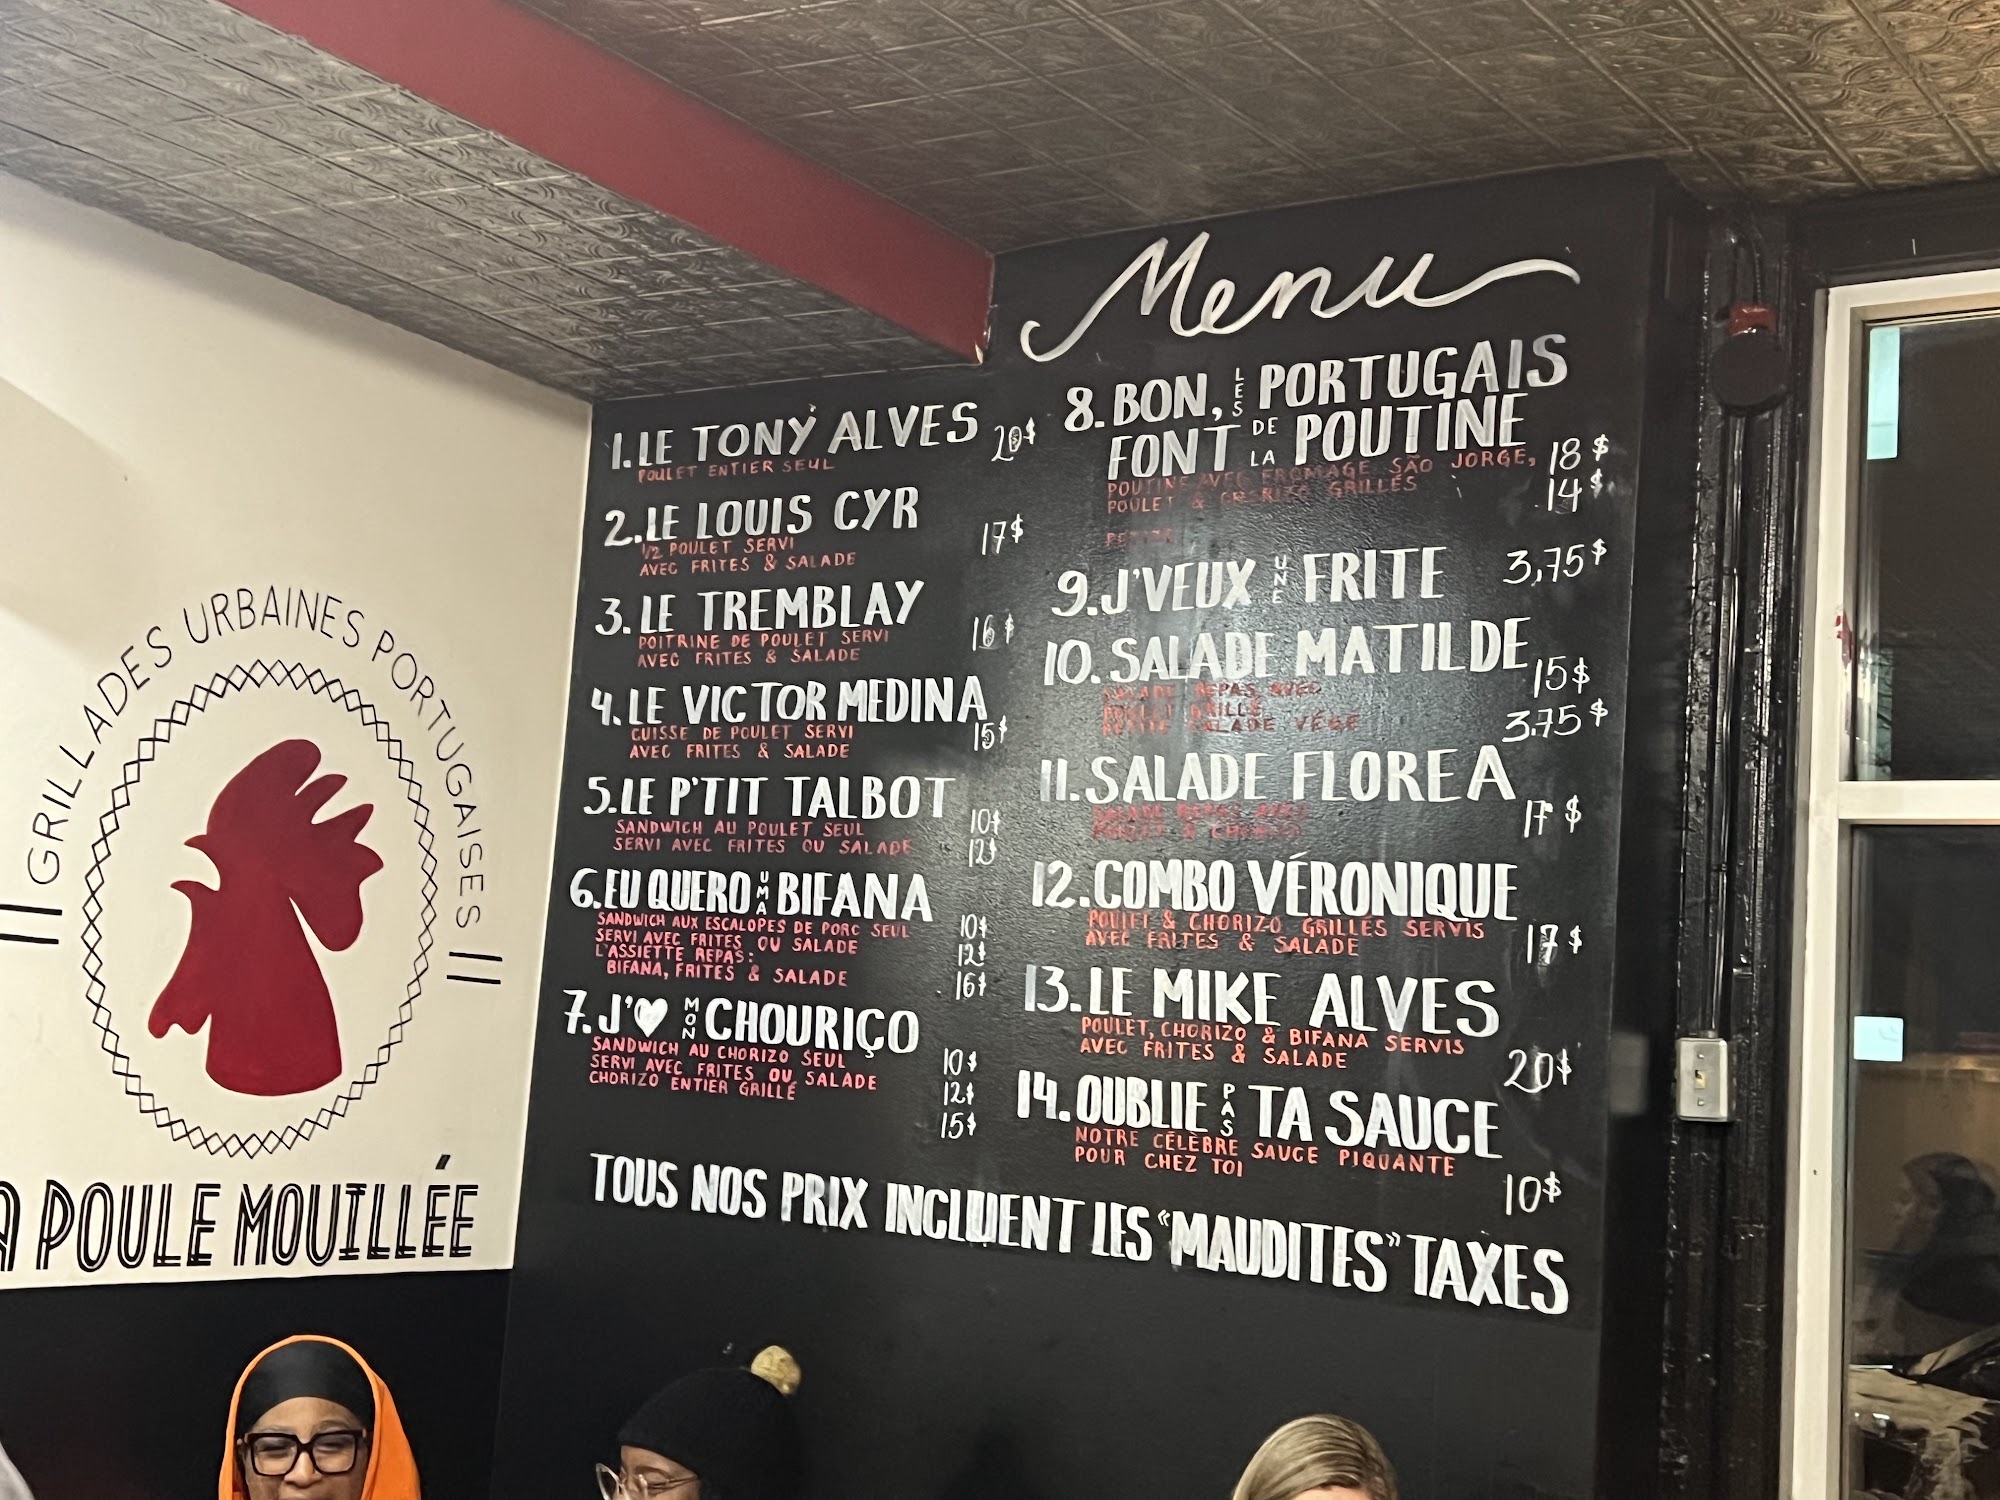 GRILLADES URBAINES PORTUGAISES
POULE MOUILLÉE
Menu
1. LE TONY ALVES 20$
POULET ENTIER SEUL
2. LE LOUIS CYR 17$
1/2 POULET SERVI
AVEC FRITES & SALADE
3. LE TREMBLAY 16$
POITRINE DE POULET SERVI
AVEC FRITES & SALADE
4. LE VICTOR MEDINA 15$
CUISSE DE POULET SERVI
AVEC FRITES & SALADE
5. LE P'TIT TALBOT
SANDWICH AU POULET SEUL 10$
SERVI AVEC FRITES OU SALADE 12$
6. EU QUERO UMA BIFANA
SANDWICH AUX ESCALOPES DE PORC SEUL 10$
SERVI AVEC FRITES OU SALADE 12$
L'ASSIETTE REPAS:
BIFANA, FRITES & SALADE 16$
7. J'♥ MON CHOURIÇO
SANDWICH AU CHORIZO SEUL 10$
SERVI AVEC FRITES OU SALADE 12$
CHORIZO ENTIER GRILLÉ 15$
8. BON, LES PORTUGAIS
FONT DE LA POUTINE
POUTINE AVEC FROMAGE SÃO JORGE, 18$
POULET & CHORIZO GRILLÉS 14$
PETITE
9. J'VEUX UNE FRITE 3,75$
10. SALADE MATILDE
SALADE REPAS AVEC 15$
POULET GRILLÉ
PETITE SALADE VÉGÉ 3.75$
11. SALADE FLOREA
SALADE REPAS AVEC 17$
POULET & CHORIZO
12. COMBO VÉRONIQUE
POULET & CHORIZO GRILLÉS SERVIS
AVEC FRITES & SALADE 17$
13. LE MIKE ALVES
POULET, CHORIZO & BIFANA SERVIS
AVEC FRITES & SALADE 20$
14. OUBLIE PAS TA SAUCE
NOTRE CÉLÈBRE SAUCE PIQUANTE
POUR CHEZ TOI 10$
TOUS NOS PRIX INCLUENT LES "MAUDITES" TAXES